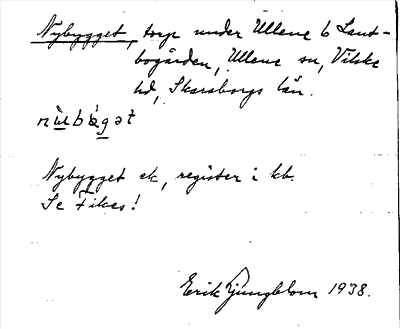 Nybygget, torp under Ullene 6 Lant-
bogården, Ullene sn, Vilske
hd, Skaraborgs län.
Nybygget ek, register i kb.
Se Fikas!
Erik Ljungblom 1938.